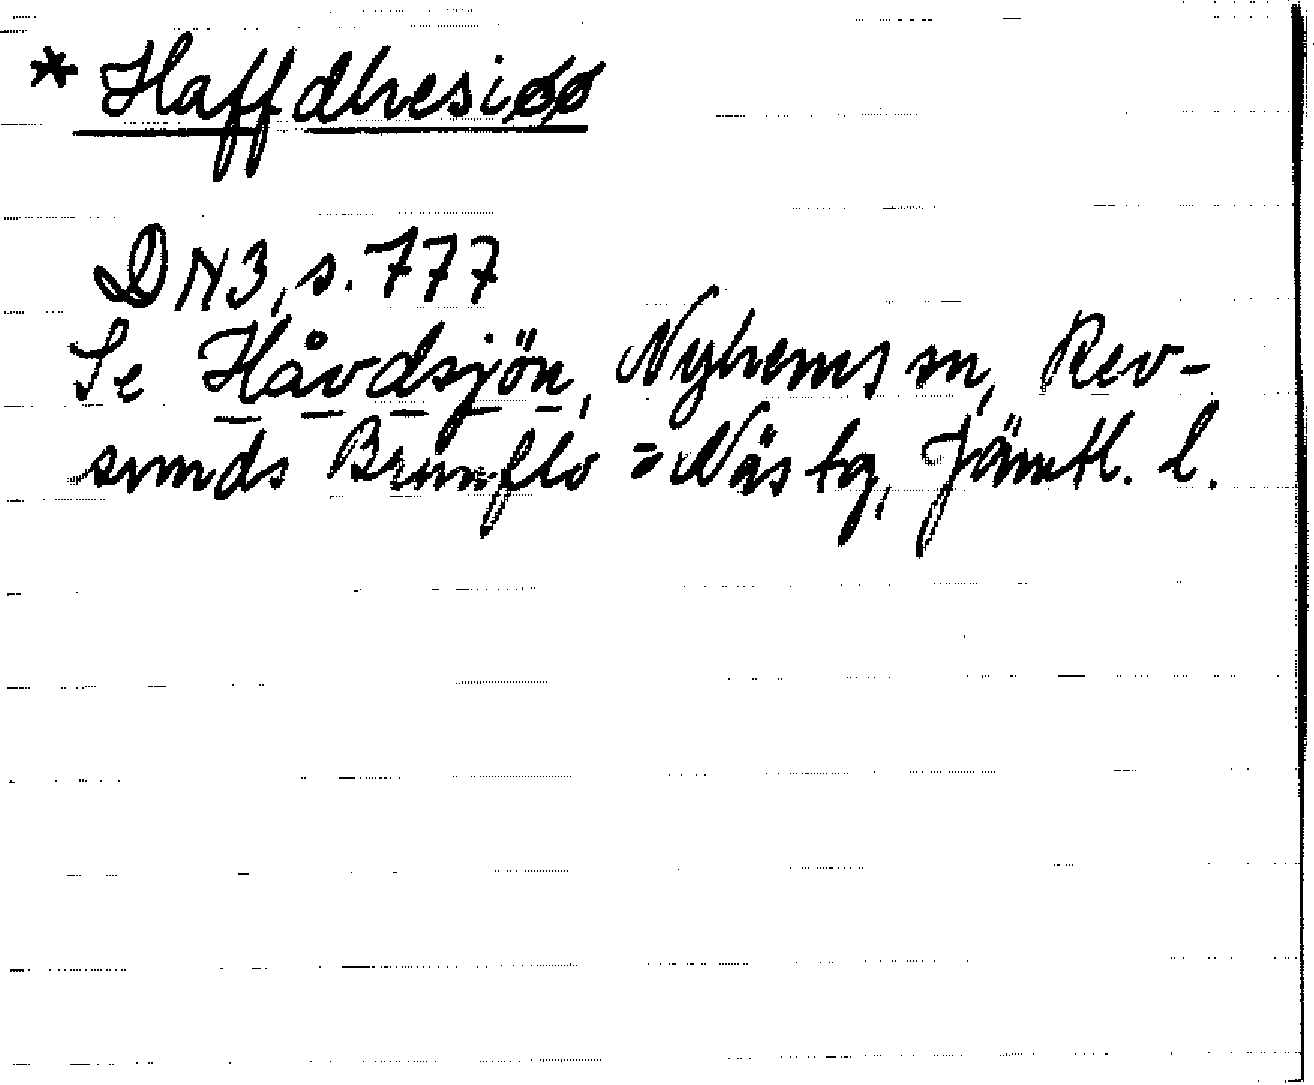 * Haffdhresiøø
DN3, s. 777
Se Håvdsjön, Nyhems sn, Rev-
sunds Brunflo = Näs tg, Jämtl. l.